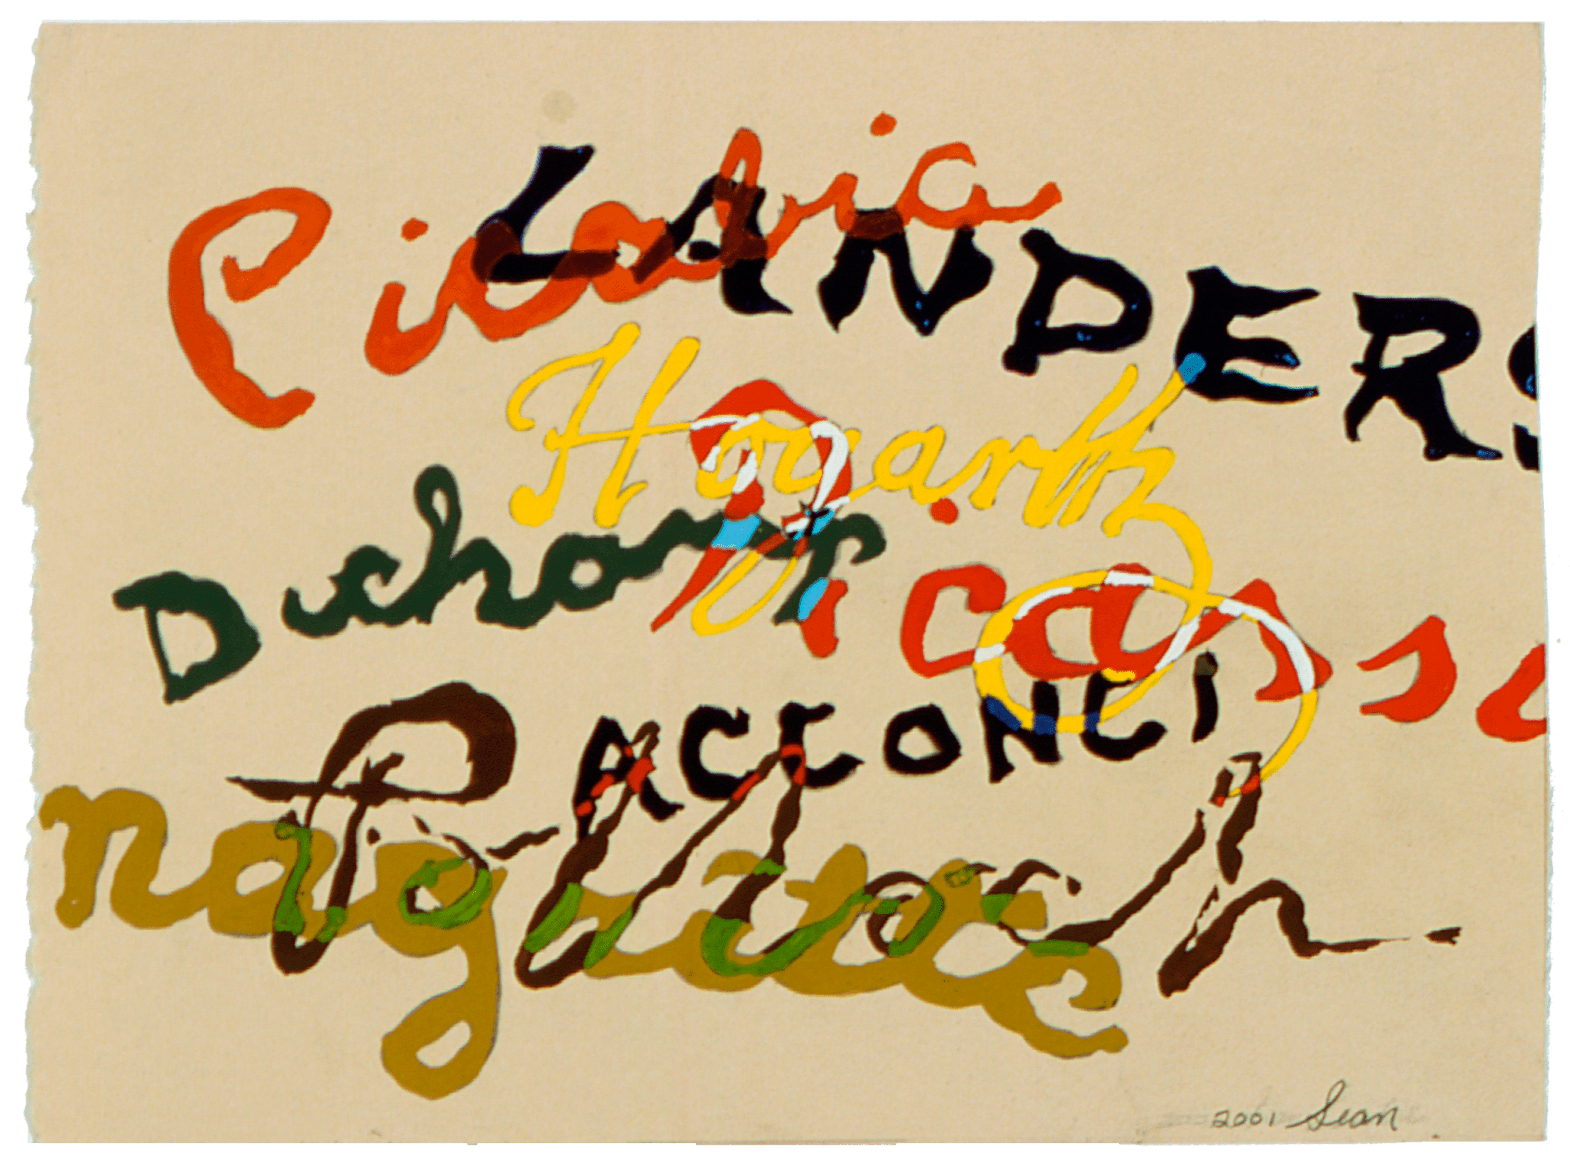 Picabia
LANDERS
Hogarth
Duchamp
Picasso
ACCONCI
Pollock
magritte
2001 Sean